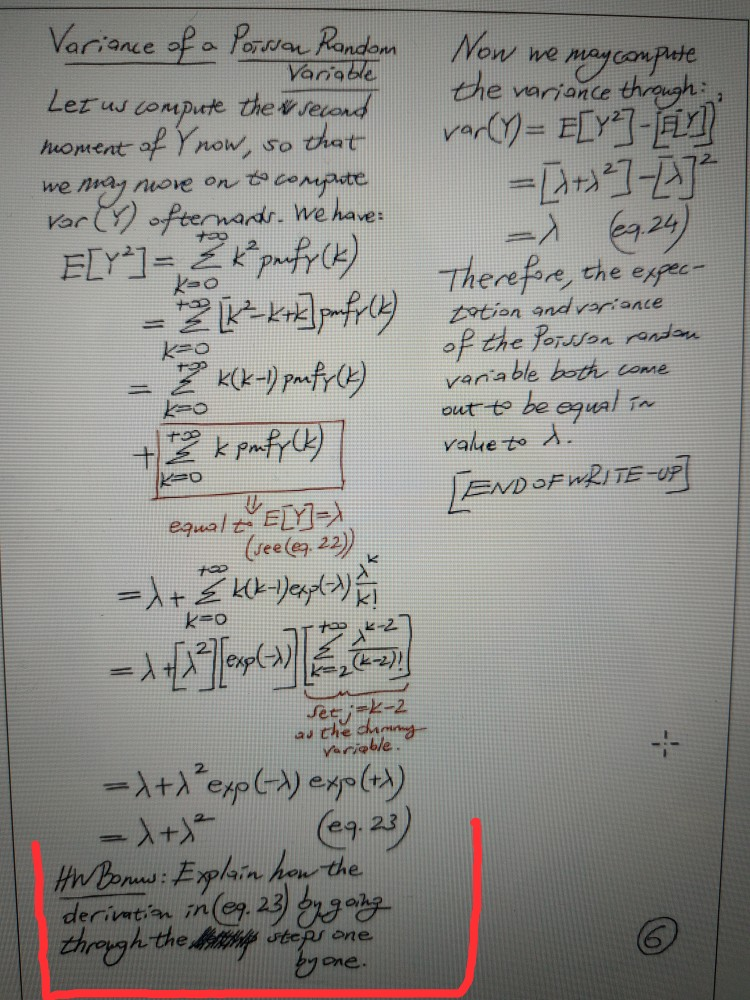 Variance of a Poisson Random
Variable
Let us compute the second
moment of Y now, so that
we may move on to compute
var(Y) afterwards. We have:
E[Y²] = Σ_{k=0}^{+∞} k² pmf_Y(k)
= Σ_{k=0}^{+∞} [k²-k+k] pmf_Y(k)
= Σ_{k=0}^{+∞} k(k-1) pmf_Y(k)
+ Σ_{k=0}^{+∞} k pmf_Y(k)
⇓
equal to E[Y]=λ
(see (eq. 22))
= λ + Σ_{k=0}^{+∞} k(k-1) exp(-λ) λ^k/k!
= λ + [λ²][exp(-λ)][Σ_{k=2}^{+∞} λ^{k-2}/(k-2)!]
set j=k-2
as the dummy
variable.
= λ + λ² exp(-λ) exp(+λ)
= λ + λ² (eq. 23)
HW Bonus: Explain how the
derivation in (eq. 23) by going
through the steps one
by one.
Now we may compute
the variance through:
var(Y) = E[Y²] - [E[Y]]²
= [λ+λ²] - [λ]²
= λ (eq. 24)
Therefore, the expec-
tation and variance
of the Poisson random
variable both come
out to be equal in
value to λ.
[END OF WRITE-UP]
6